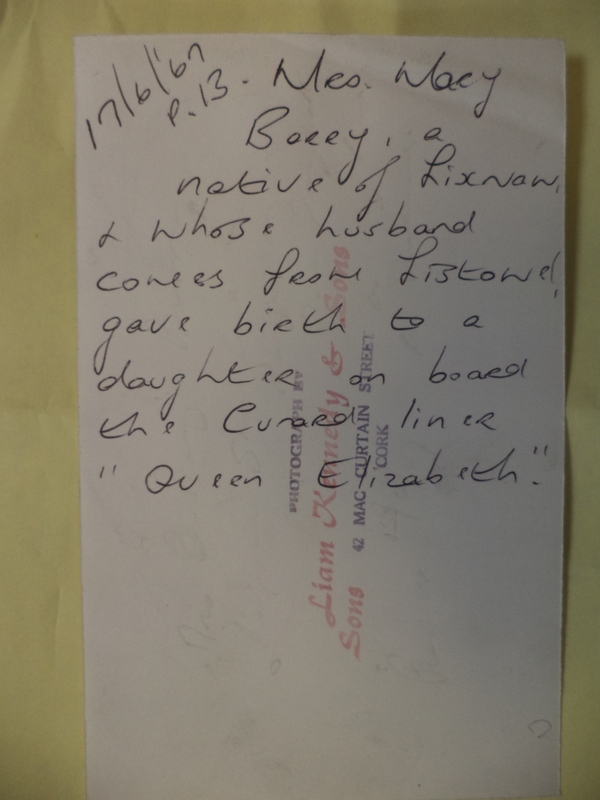 17/6/'67
P.13. Mrs. Mary
Barry, a
native of Lixnaw,
& whose husband
comes from Listowel,
gave birth to a
daughter on board
the Cunard liner
"Queen Elizabeth."
PHOTOGRAPH BY
Liam Kennedy & Sons
Sons
42 MAC CURTAIN STREET
CORK